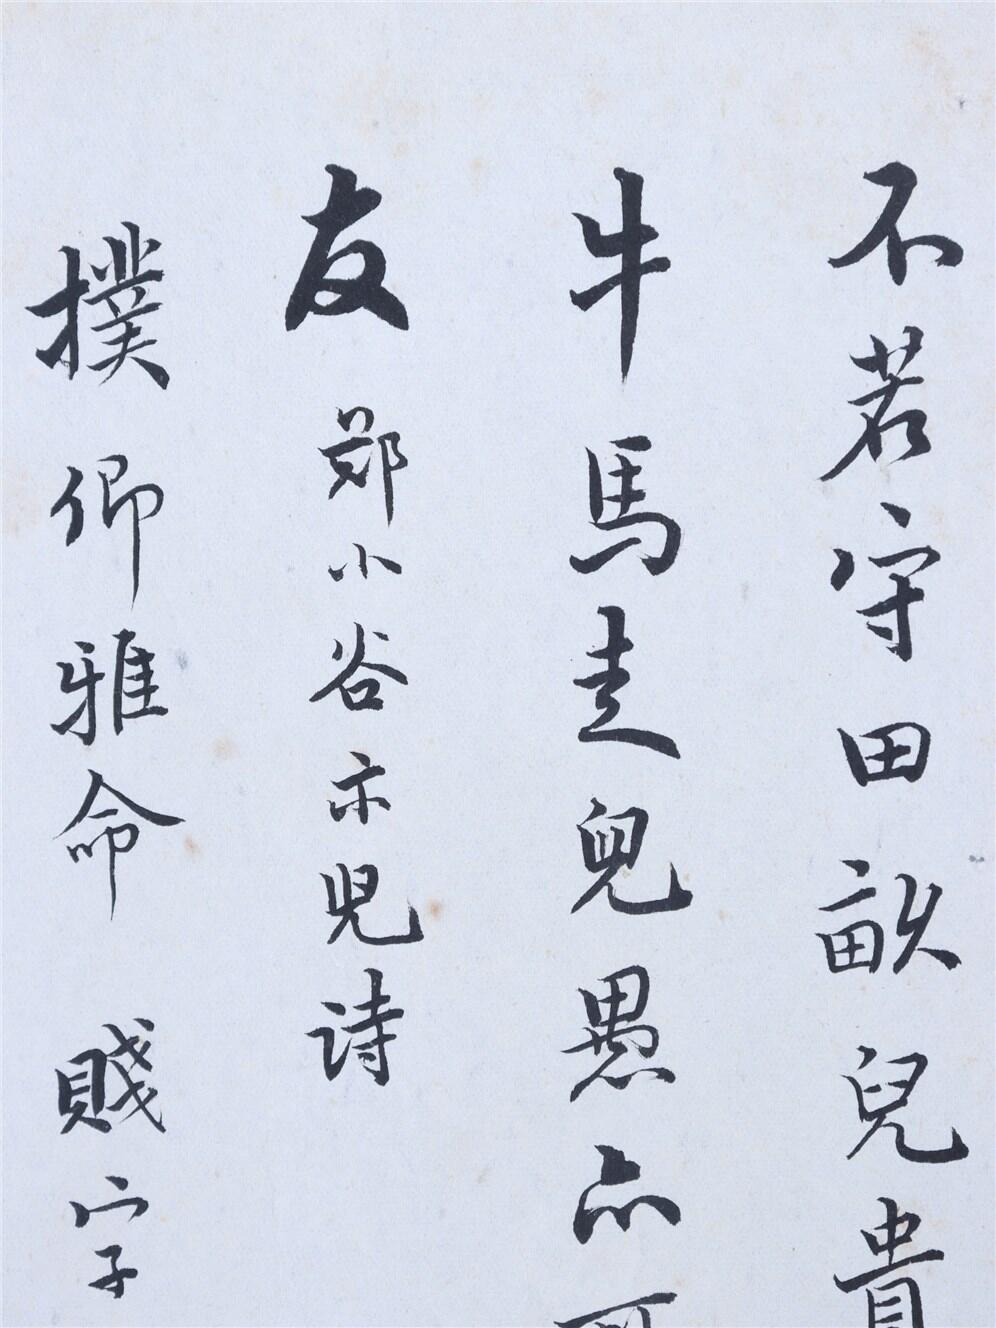 不若守田畝兒貴
牛馬走兒愚亦可
友 鄭小谷示児詩
撲卿雅命 賤字